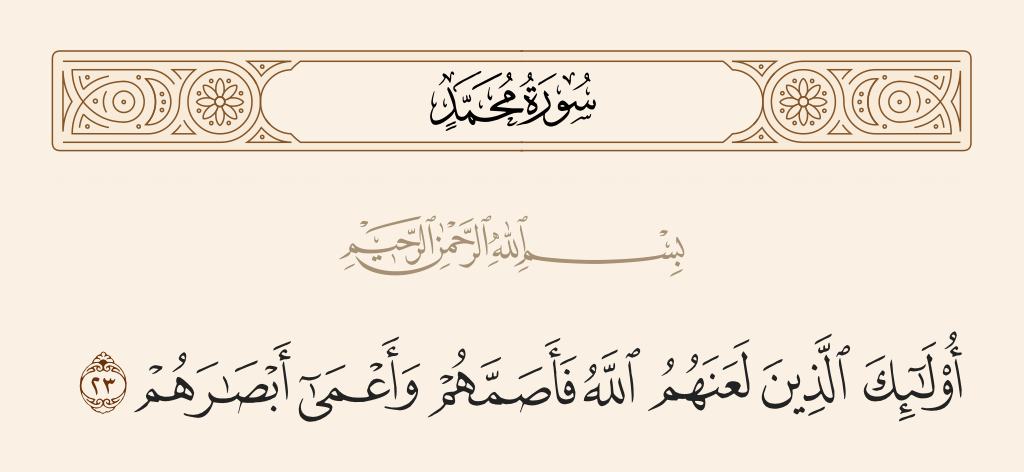 سُورَةُ مُحَمَّدٍ
بِسْمِ ٱللَّهِ ٱلرَّحْمَٰنِ ٱلرَّحِيمِ
أُو۟لَٰٓئِكَ ٱلَّذِينَ لَعَنَهُمُ ٱللَّهُ فَأَصَمَّهُمْ وَأَعْمَىٰٓ أَبْصَٰرَهُمْ ٢٣